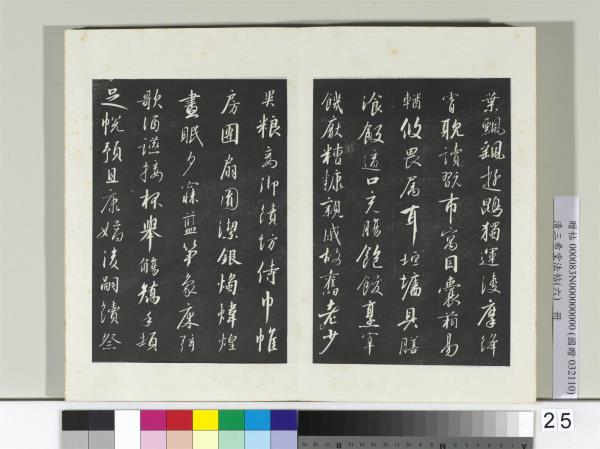 葉飄飖遊鵾獨運凌摩絳
霄耽讀翫市寓目囊箱易
輶攸畏属耳垣墻具膳
飡飯適口充腸飽飫烹宰
饑厭糟糠親戚故舊老少
異粮妾御績紡侍巾帷
房團扇圓潔銀燭煒煌
晝眠夕寐藍笋象床弦
歌酒讌接杯舉觴矯手頓
足悅預且康嫡後嗣續祭
贈帖 000083N000000000 (國贈 032110)
清三希堂法帖(六) 冊
25